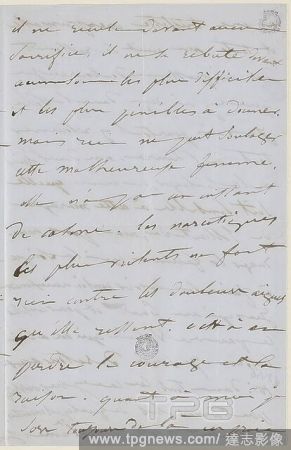 il ne recule devant aucun
sacrifice, il ne se rebute devant
aucun soin les plus difficiles
et les plus pénibles à donner
mais rien ne peut soulager
cette malheureuse femme.
elle n'a pas un instant
de calme. les narcotiques
les plus violents ne font
rien contre les douleurs aigues
qu'elle ressent. c'est à en
perdre le courage et la
raison. quant à moi je
sors de là
TPG
www.tpgnews.com / 達志影像